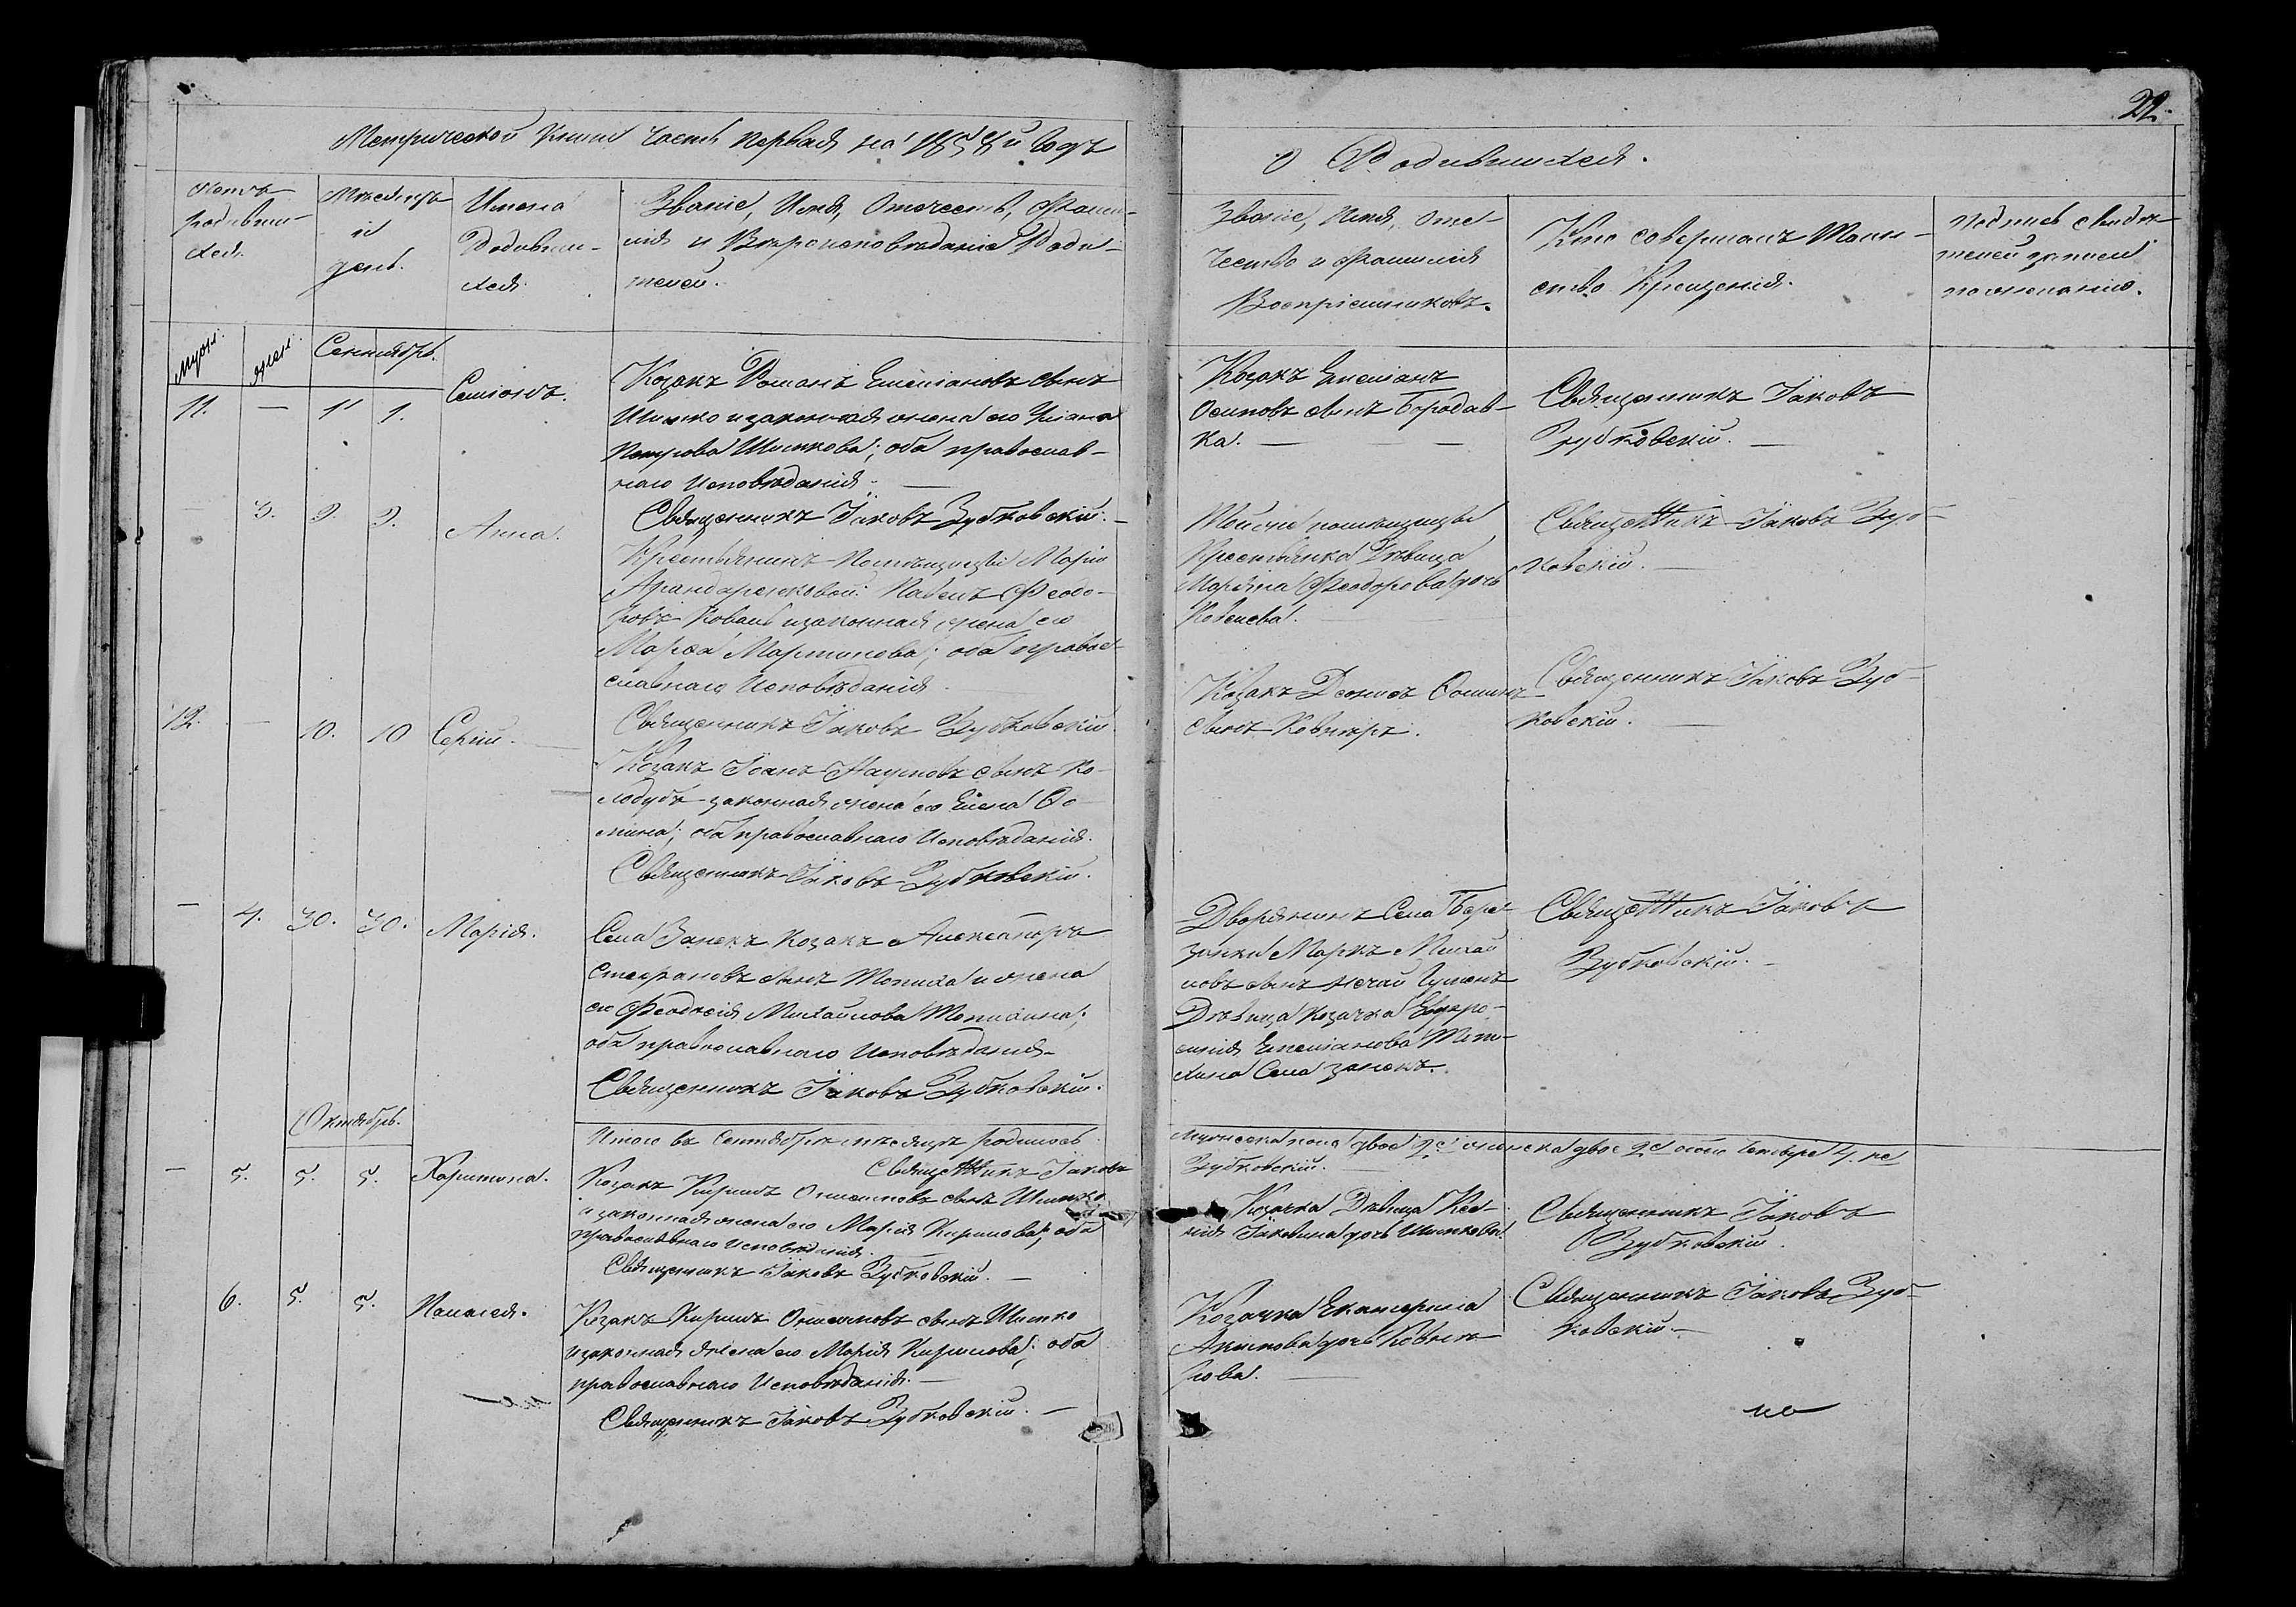 22.
Метрической Книги часть первая на 1858й годъ
о Родившихся.
Счетъ
родивши-
хся.
Мѣсяцъ
и
день.
Имена
Родивши-
хся.
Званіе, Имя, Отечество, Фами-
лія и Вѣроисповѣданіе Роди-
телей.
Званіе, Имя, Оте-
чество и Фамилія
Воспріемниковъ.
Кто совершалъ Таин-
ство Крещенія.
Подпись свидѣ-
телей записи
по желанію.
муж.
жен.
Сентябрь.
11. — 1 1. Симіонъ.
Козакъ Романъ Емеліановъ сынъ
Шишко и законная жена его Уліана
Петрова Шишкова; оба православ-
наго Исповѣданія. —
Священникъ Іаковъ Зубковскій. —
Козакъ Емеліанъ
Осиповъ сынъ Бородав-
ка. —
Священникъ Іаковъ
Зубковскій. —
— 3. 9. 9. Анна.
Крестьянинъ Помѣщицы Маріи
Арандаренковой Павелъ Феодо-
ровъ Коваль и законная жена его
Марѳа Мартинова; оба право-
славнаго Исповѣданія.
Священникъ Іаковъ Зубковскій.
Той же помѣщицы
Крестьянка Дѣвица
Феодорова дочь
Ковалева.
Священникъ Іаковъ Зуб-
ковскій. —
12. — 10. 10 Сергій. —
Козакъ Іоанъ Наумовъ сынъ Ко-
лодубъ законная жена его Елена
оба православнаго Исповѣданія.
Священникъ Іаковъ Зубковскій.
Козакъ
сынъ
Священникъ Іаковъ Зуб-
ковскій. —
— 4. 30. 30. Марія.
Села Занекъ Козакъ Александръ
Стефановъ сынъ Топиха и жена
его Феодосія Михайлова Топихина;
оба православнаго Исповѣданія.
Священникъ Іаковъ Зубковскій.
Дворянинъ Села Бере-
зянки Маркъ Михай-
ловъ сынъ
Дѣвица Козачка Евфро-
синія Емеліанова Топи-
хина Села Занекъ.
Священникъ Іаковъ
Зубковскій. —
Октябрь.
Итого въ Сентябрѣ мѣсяцѣ родилось
мужеска пола двое 2. женска двое 2. обоего четыре 4.
Священникъ Іаковъ
Зубковскій.
— 5. 5. 5. Харитина.
Козакъ Кирилъ Онисимовъ сынъ Шишко
и законная жена его Марія Кирилова; оба
православнаго Исповѣданія.
Священникъ Іаковъ Зубковскій. —
Козачка Дѣвица Ксе-
нія Іаковлева дочь Шишкова.
Священникъ Іаковъ
Зубковскій.
6. 5. 5. Пелагея.
Козакъ Кирилъ Онисимовъ сынъ Шишко
и законная жена его Марія Кирилова; оба
православнаго Исповѣданія. —
Священникъ Іаковъ Зубковскій. —
Козачка Екатерина
Акимова дочь
рова.
Священникъ Іаковъ Зуб-
ковскій. —